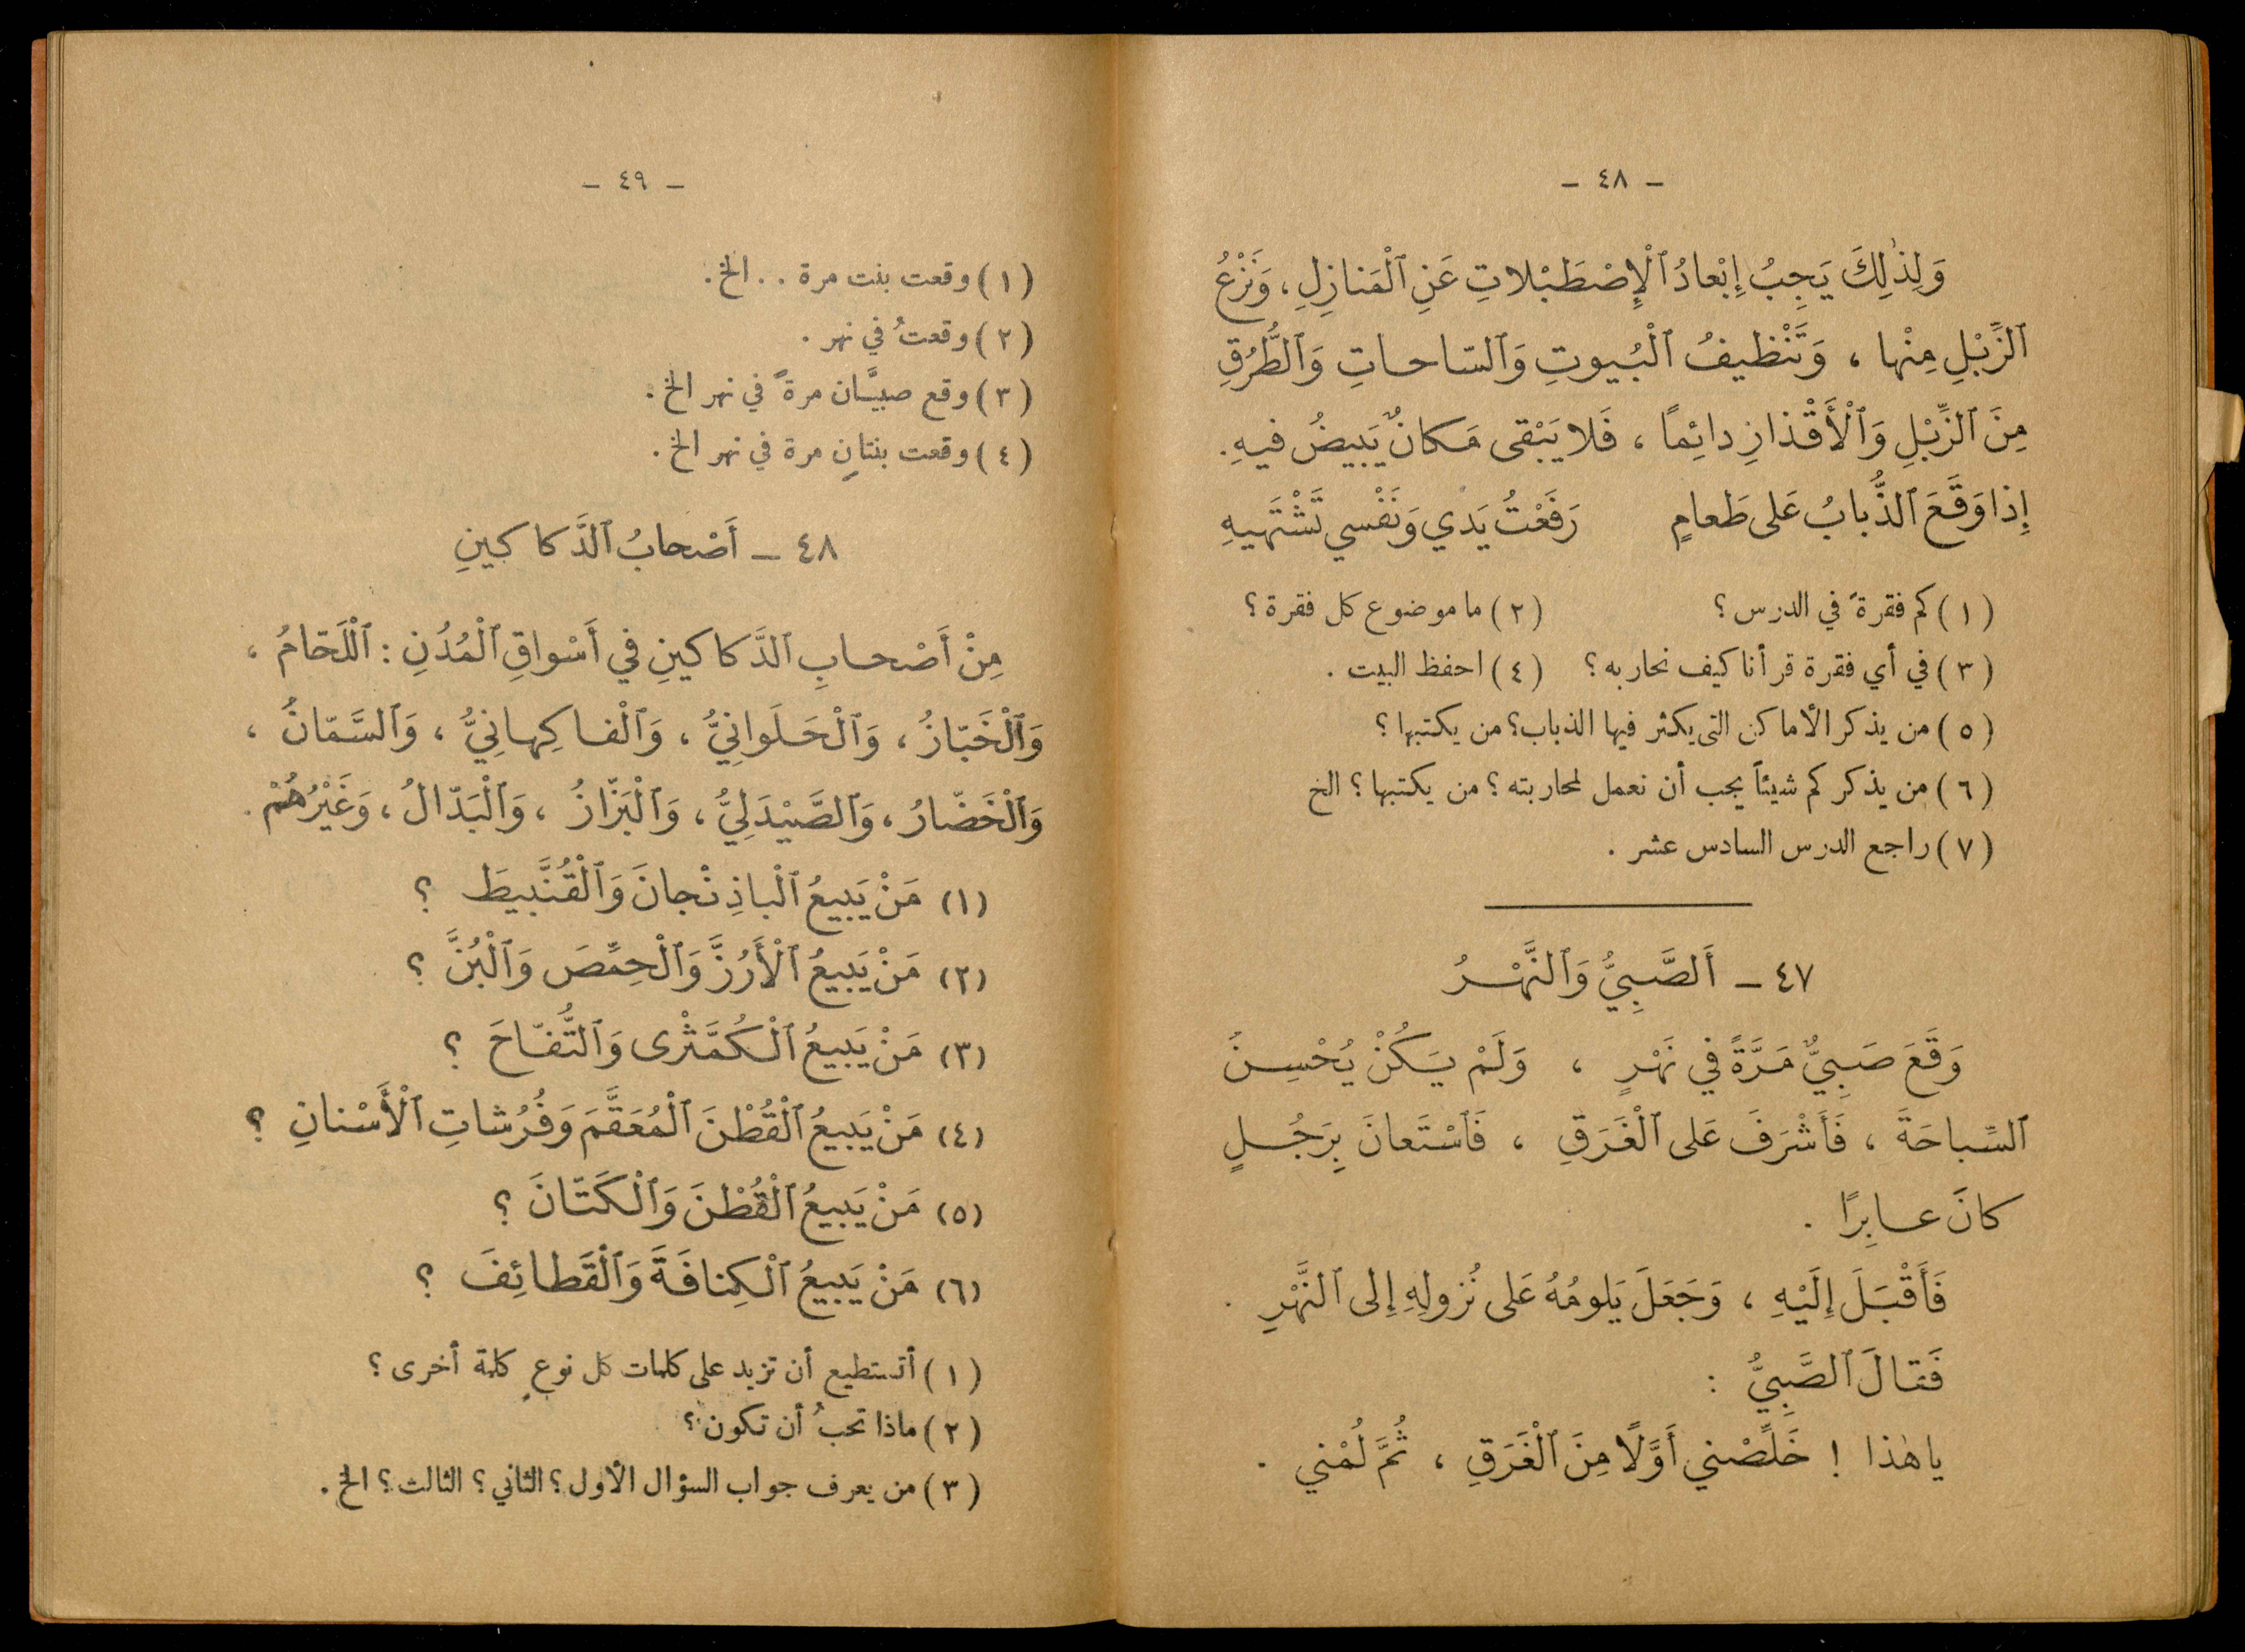 - ٤٨ -
وَلِذٰلِكَ يَجِبُ إِبْعادُ ٱلْإِصْطَبْلاتِ عَنِ ٱلْمَنازِلِ ، وَنَزْعُ
ٱلزِّبْلِ مِنْها ، وَتَنْظيفُ ٱلْبُيوتِ وَٱلسّاحاتِ وَٱلطُّرُقِ
مِنَ ٱلزِّبْلِ وَٱلْأَقْذارِ دائِمًا ، فَلا يَبْقى مَكانٌ يَبيضُ فيهِ.
إِذا وَقَعَ ٱلذُّبابُ عَلى طَعامٍ رَفَعْتُ يَدي وَنَفْسي تَشْتَهيهِ
(١) كم فقرةً في الدرس ؟ (٢) ما موضوع كل فقرة ؟
(٣) في أي فقرة قرأنا كيف نحاربه ؟ (٤) احفظ البيت .
(٥) من يذكر الأماكن التى يكثر فيها الذباب؟ من يكتبها ؟
(٦) من يذكر كم شيئاً يجب أن نعمل لمحاربته ؟ من يكتبها ؟ الخ
(٧) راجع الدرس السادس عشر .
٤٧ - أَلصَّبِيُّ وَٱلنَّهْرُ
وَقَعَ صَبِيٌّ مَرَّةً في نَهْرٍ ، وَلَمْ يَكُنْ يُحْسِنُ
ٱلسِّباحَةَ ، فَأَشْرَفَ عَلى ٱلْغَرَقِ ، فَٱسْتَعانَ بِرَجُلٍ
كانَ عابِرًا .
فَأَقْبَلَ إِلَيْهِ ، وَجَعَلَ يَلومُهُ عَلى نُزولِهِ إِلى ٱلنَّهْرِ .
فَقالَ ٱلصَّبِيُّ :
يا هٰذا ! خَلِّصْني أَوَّلًا مِنَ ٱلْغَرَقِ ، ثُمَّ لُمْني .
- ٤٩ -
(١) وقعت بنت مرة . . الخ .
(٢) وقعتُ في نهر .
(٣) وقع صبيَّان مرةً في نهر الخ .
(٤) وقعت بنتانِ مرة في نهر الخ .
٤٨ - أَصْحابُ ٱلدَّكاكينِ
مِنْ أَصْحابِ ٱلدَّكاكينِ في أَسْواقِ ٱلْمُدُنِ : ٱلْلَحّامُ ،
وَٱلْخَبّازُ ، وَٱلْحَلَوانِيُّ ، وَٱلْفاكِهانِيُّ ، وَٱلسَّمّانُ ،
وَٱلْخَضّارُ ، وَٱلصَّيْدَلِيُّ ، وَٱلْبَزّازُ ، وَٱلْبَدّالُ ، وَغَيْرُهُمْ .
(١) مَنْ يَبيعُ ٱلْباذِنْجانَ وَٱلْقُنَّبيطَ ؟
(٢) مَنْ يَبيعُ ٱلْأَرُزَّ وَٱلْحِمِّصَ وَٱلْبُنَّ ؟
(٣) مَنْ يَبيعُ ٱلْكُمَّثْرى وَٱلتُّفّاحَ ؟
(٤) مَنْ يَبيعُ ٱلْقُطْنَ ٱلْمُعَقَّمَ وَفُرُشاتِ ٱلْأَسْنانِ ؟
(٥) مَنْ يَبيعُ ٱلْقُطْنَ وَٱلْكَتّانَ ؟
(٦) مَنْ يَبيعُ ٱلْكِنافَةَ وَٱلْقَطائِفَ ؟
(١) أتستطيع أن تزيد على كلمات كل نوعٍ كلمة أخرى ؟
(٢) ماذا تحبُ أن تكون ؟
(٣) من يعرف جواب السؤال الأول ؟ الثاني ؟ الثالث ؟ الخ .